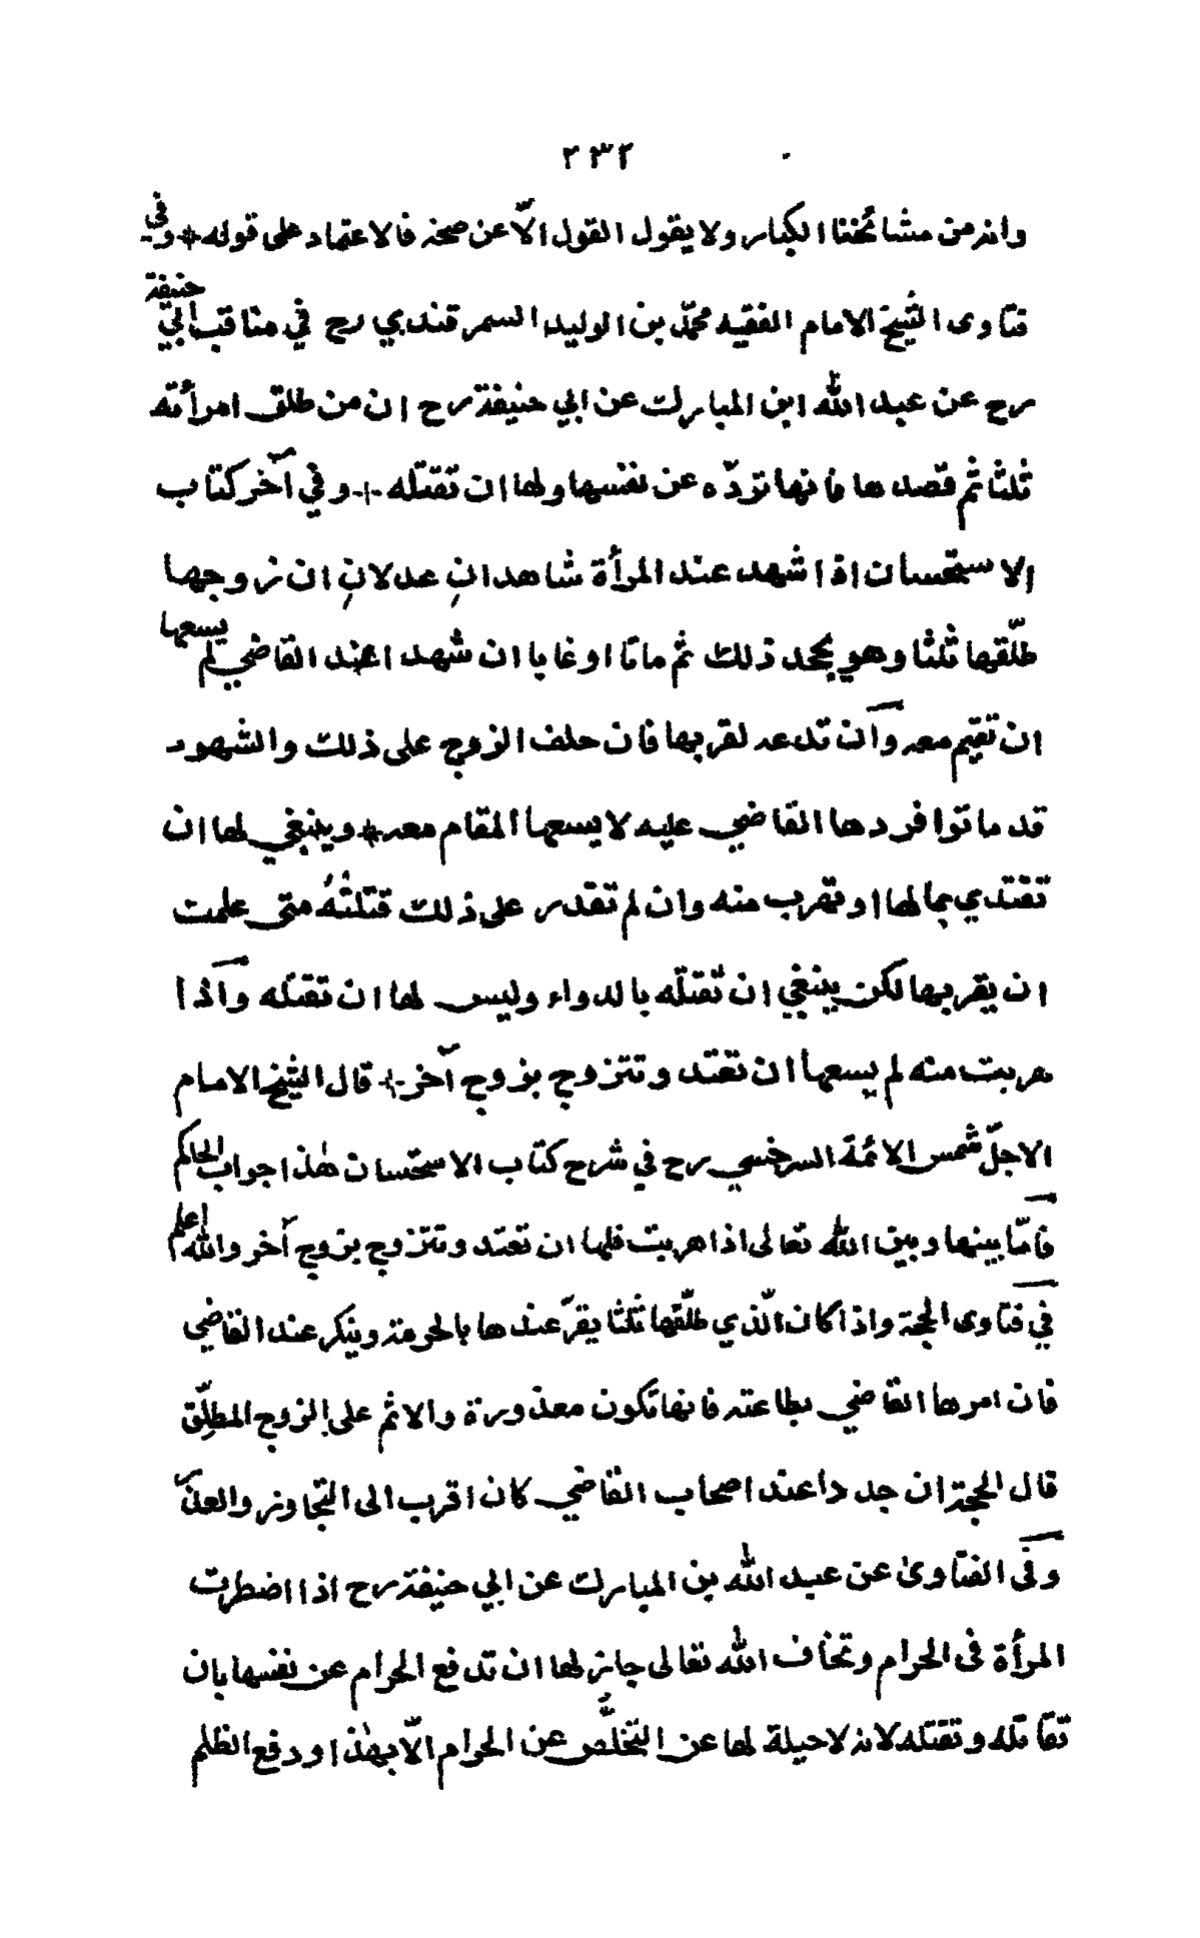 ٢٣٢
وانه من مشائخنا الكبار ولا يقول القول الّا عن صحة فالاعتماد على قوله * وفي
فتاوى الشيخ الامام الفقيه محمّد بن الوليد السمرقندي رح في مناقب ابي حنيفة
رح عن عبد الله ابن المبارك عن ابي حنيفة رح ان من طلق امرأته
ثلثا ثم قصدها فانها تردّه عن نفسها ولها ان تقتله * وفي آخر كتاب
الاستحسان اذا شهد عند المرأة شاهدانِ عدلانِ ان زوجها
طلّقها ثلثا وهو يجحد ذلك ثم ماتا او غابا ان شهدا عند القاضي لم يسعها
ان تقيم معه وان تدعه لقربها فان حلف الزوج على ذلك والشهود
قد ماتوا فردها القاضي عليه لا يسعها المقام معه * وينبغي لها ان
تفتدي بمالها او تهرب منه وان لم تقدر على ذلك قتلتْهُ متى علمت
ان يقربها لكن ينبغي ان تقتله بالدواء وليس لها ان تقتله واذا
هربت منه لم يسعها ان تعتد وتتزوج بزوج آخر * قال الشيخ الامام
الاجلّ شمس الائمة السرخسي رح في شرح كتاب الاستحسان هٰذا جواب الحاكم
فامّا بينها وبين الله تعالى اذا هربت فلها ان تعتد وتتزوج بزوج آخر والله اعلم
في فتاوى الحجة واذا كان الّذي طلّقها ثلثا يقرّ عندها بالحرمة وينكر عند القاضي
فان امرها القاضي بطاعته فانها تكون معذورة والاثم على الزوج المطلِّق
قال الحجة ان جددا عند اصحاب القاضي كان اقرب الى التجاوز والعذر
وفى الفتاوىٰ عن عبد الله بن المبارك عن ابي حنيفة رح اذا اضطرت
المرأة فى الحرام وتخاف الله تعالى جاز لها ان تدفع الحرام عن نفسها بان
تقاتله وتقتله لانه لا حيلة لها عن التخلُّص عن الحرام الّا بهٰذا ودفع الظلم